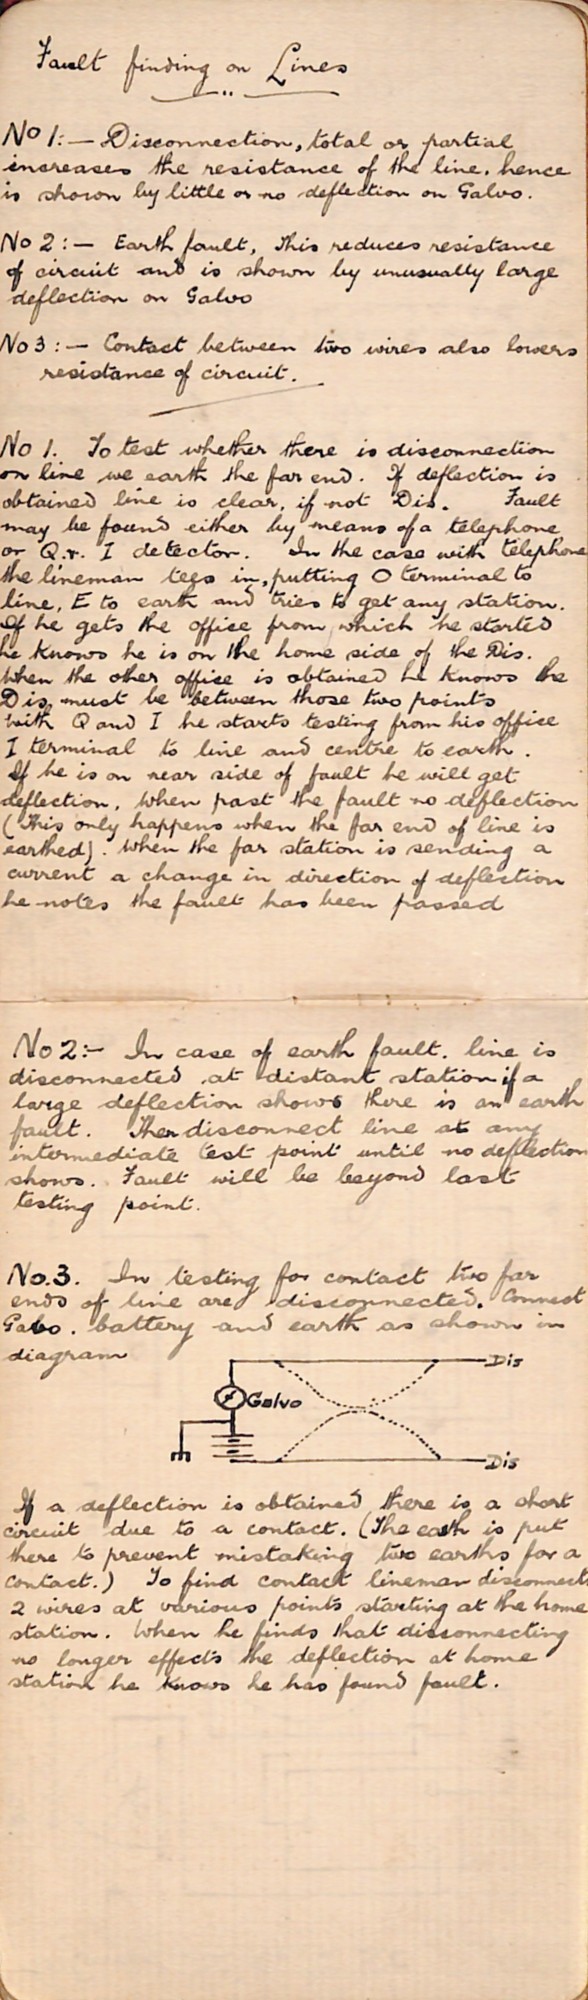 Fault finding on Lines
No 1:— Disconnection, total or partial
increases the resistance of the line, hence
is shown by little or no deflection on Galvo.
No 2:— Earth fault, This reduces resistance
of circuit and is shown by unusually large
deflection on Galvo
No 3:— Contact between two wires also lowers
resistance of circuit.
No 1. To test whether there is disconnection
on line we earth the far end. If deflection is
obtained line is clear, if not Dis. Fault
may be found either by means of a telephone
or Q.r. I detector. In the case with telephone
the lineman tees in, putting O terminal to
line, E to earth and tries to get any station.
If he gets the office from which he started
he knows he is on the home side of the Dis.
When the other office is obtained he knows the
Dis must be between those two points
With Q and I he starts testing from his office
I terminal to line and centre to earth.
If he is on near side of fault he will get
deflection, when past the fault no deflection
(This only happens when the far end of line is
earthed). When the far station is sending a
current a change in direction of deflection
he notes the fault has been passed
No 2:- In case of earth fault. line is
disconnected at distant station if a
large deflection shows there is an earth
fault. Then disconnect line at any
intermediate test point until no deflection
shows. Fault will be beyond last
testing point.
No. 3. In testing for contact two far
ends of line are disconnected. Connect
Galvo. battery and earth as shown in
diagram
Dis
Galvo
Dis
If a deflection is obtained there is a short
circuit due to a contact. (The earth is put
there to prevent mistaking two earths for a
contact.) To find contact lineman disconnects
2 wires at various points starting at the home
station. When he finds that disconnecting
no longer effects the deflection at home
station he knows he has found fault.